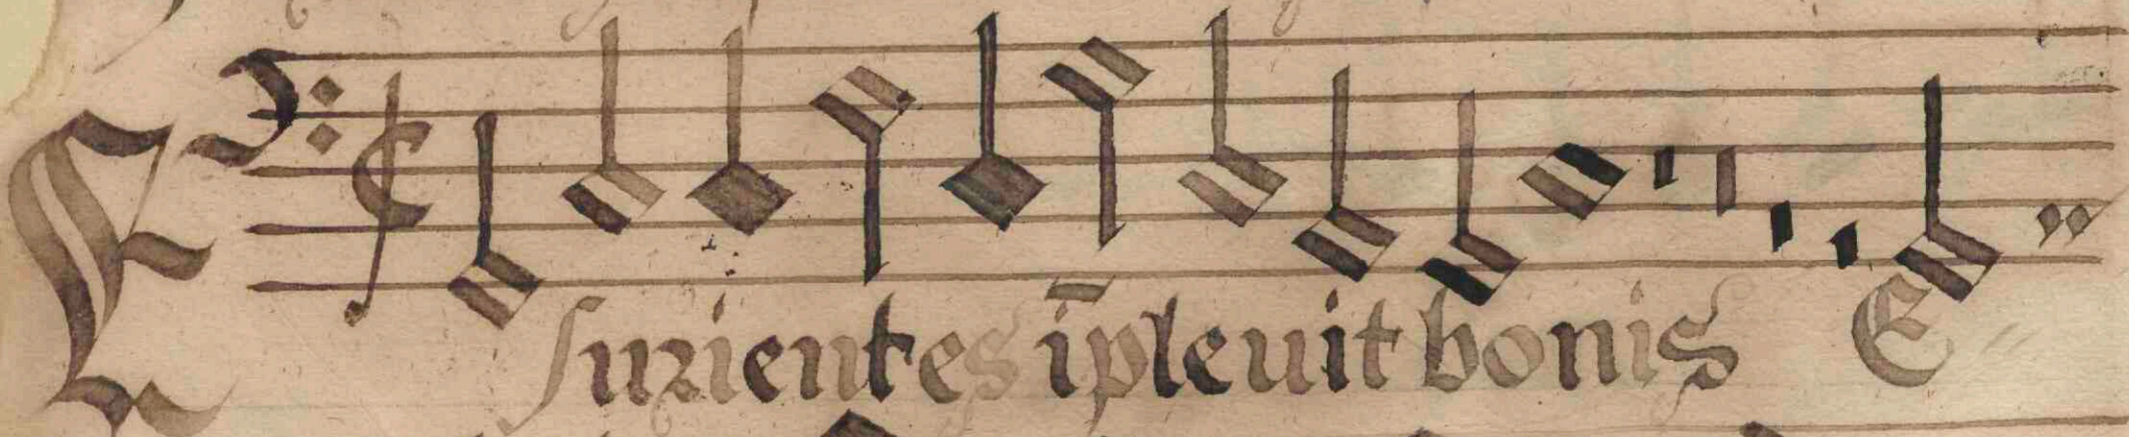 Esurientes īpleuit bonis E